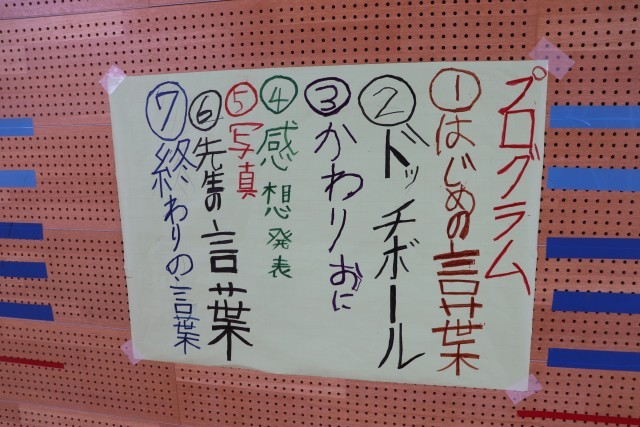 プログラム
①はじめの言葉
②ドッチボール
③かわりおに
④感想発表
⑤写真
⑥先生の言葉
⑦終わりの言葉